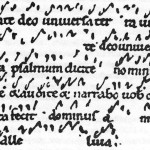 te deo universa ter
te deo univer
psalmum dicite nomini
& audite & narrabo vob
fecit dominus
alle luia